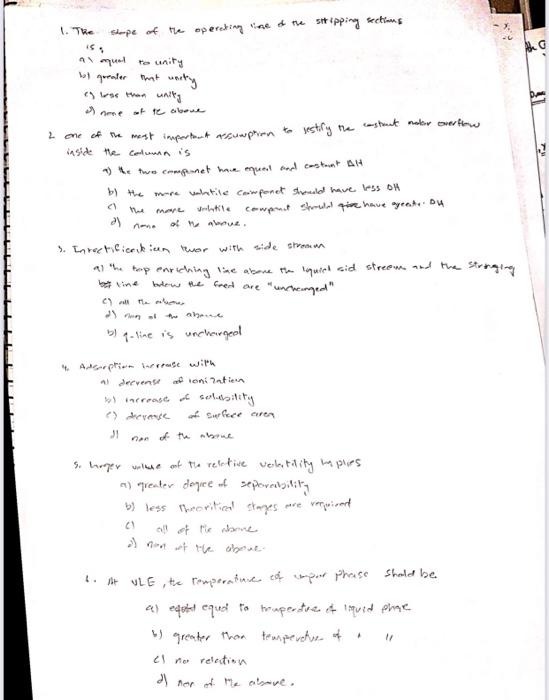 1. The slope of the operating line of the stripping sections
is,
a) equal to unity
b) greater that unity
c) less than unity
d) none of te above
2 one of the most important assumption to jestify the constant molar overflow
inside the column is
a) the two componet have equel and costant ΔH
b) the more volatile componet should have less ΔH
c) the more voltile compont should have greater ΔH
d) none of the above.
3. In rectification tower with side stream
a) the top enriching line above the liquid sid stream and the stripping
line below the feed are "unchanged"
c) all the above
d) non of the above
b) q-line is unchanged
4. Adsorption increase with
a) decrense of ionization
b) increase of solubility
c) decrease of surface area
d) non of the above
5. larger value of the reletive volatility implies
a) greater degree of seperability
b) less theoritical stages are required
c) all of the above
d) non of the above.
6. At VLE, the temperature of vapor phase shold be
a) equel to temperature of liquid phase
b) greater than temperature of " "
c) no relation
d) non of the above.